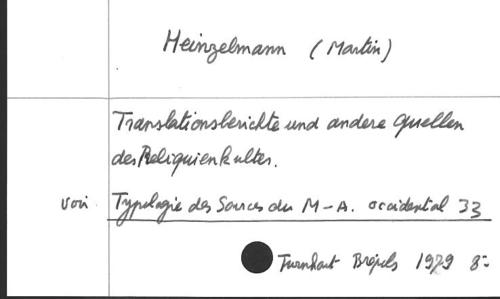 Heinzelmann (Martin)
Translationsberichte und andere Quellen
des Reliquienkultes.
voir Typologie des Sources du M-A. occidental 33
Turnhout Brépols 1979 8°